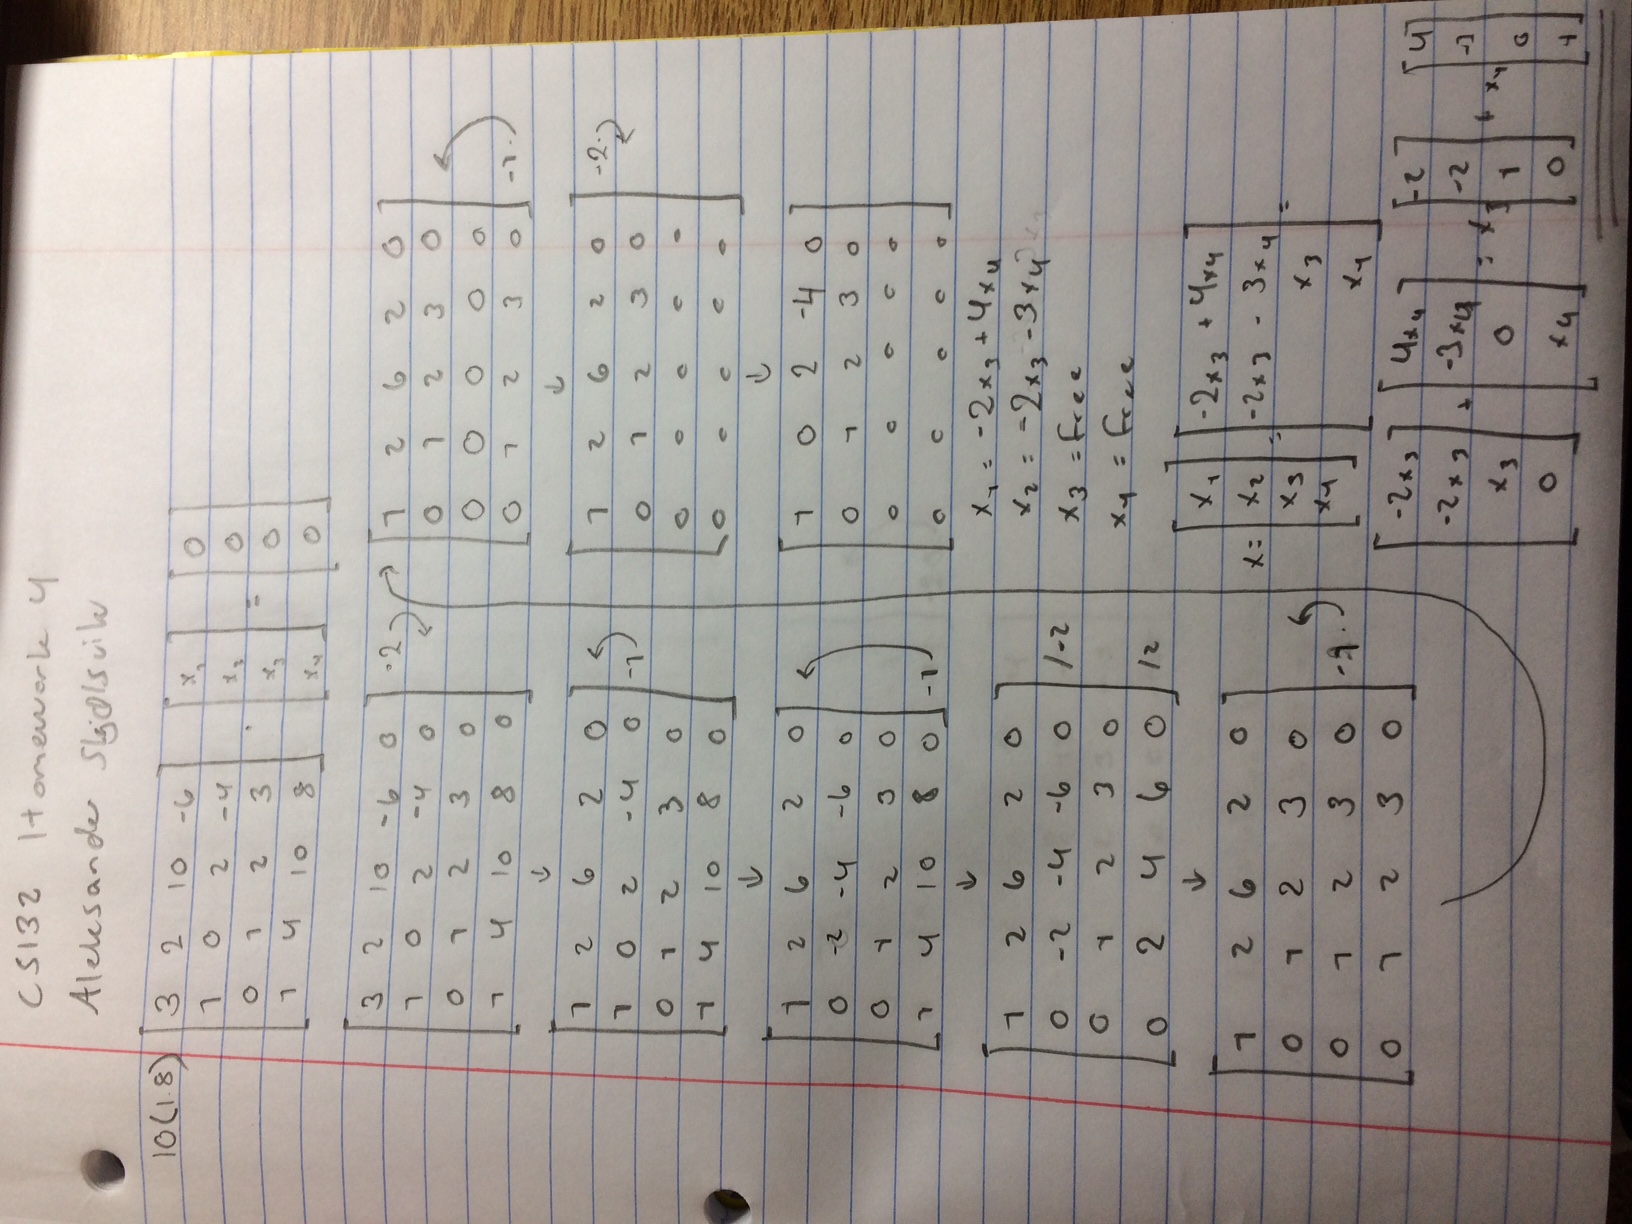 CS132 Homework 4
Aleksander Skjølsvik
10(1.8)
3 2 10 -6
1 0 2 -4
0 1 2 3
1 4 10 8
·
x₂
x₃
x₄
=
0
0
0
0
3 2 10 -6 0 ·2
1 0 2 -4 0
0 1 2 3 0
1 4 10 8 0
↓
1 2 6 2 0
1 0 2 -4 0 -1
0 1 2 3 0
1 4 10 8 0
↓
1 2 6 2 0
0 -2 -4 -6 0
0 1 2 3 0
1 4 10 8 0 -1
↓
1 2 6 2 0
0 -2 -4 -6 0 /-2
0 1 2 3 0
0 2 4 6 0 /2
↓
1 2 6 2 0
0 1 2 3 0
0 1 2 3 0 -1·
0 1 2 3 0
1 2 6 2 0
0 1 2 3 0
0 0 0 0 0
0 1 2 3 0 -1·
↓
1 2 6 2 0 -2·
0 1 2 3 0
0 0 0 0 0
0 0 0 0 0
↓
1 0 2 -4 0
0 1 2 3 0
0 0 0 0 0
0 0 0 0 0
x₁ = -2x₃ + 4x₄
x₂ = -2x₃ - 3x₄
x₃ = free
x₄ = free
x =
x₁
x₂
x₃
x₄
=
-2x₃ + 4x₄
-2x₃ - 3x₄
x₃
x₄
=
-2x₃
-2x₃
x₃
0
+
4x₄
-3x₄
0
x₄
= x₃
-2
-2
1
0
+ x₄
4
-3
0
1